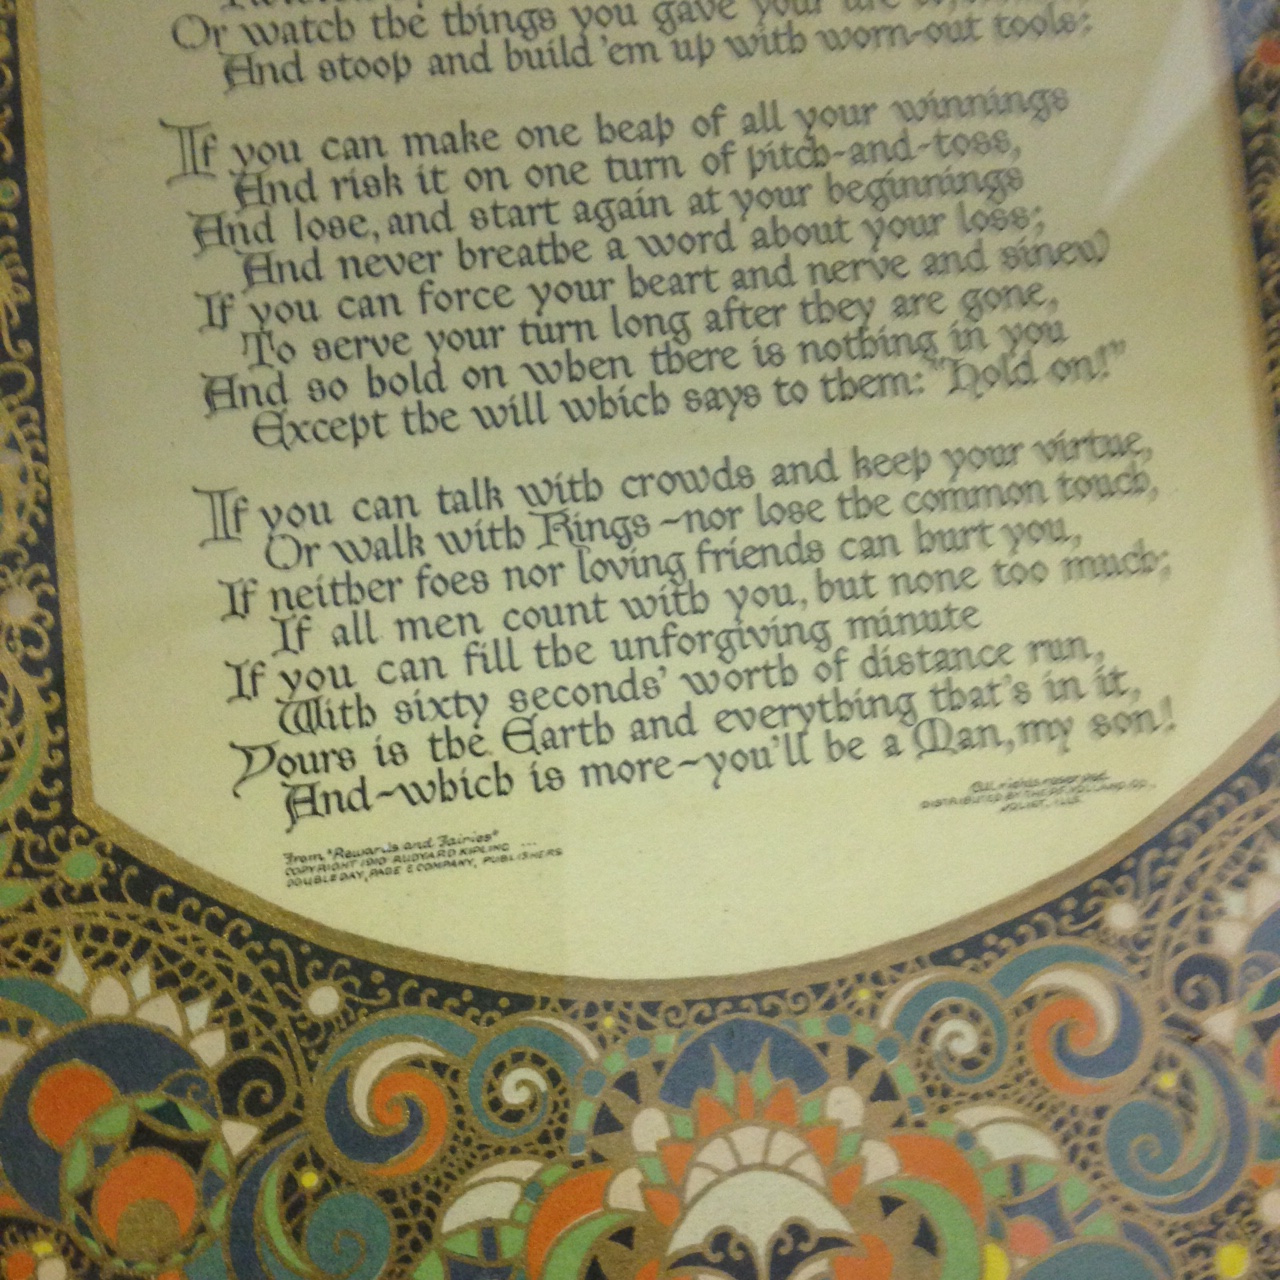 Or watch the things you gave your
And stoop and build 'em up with worn-out tools;
If you can make one heap of all your winnings
And risk it on one turn of pitch-and-toss,
And lose, and start again at your beginnings
And never breathe a word about your loss;
If you can force your heart and nerve and sinew
To serve your turn long after they are gone,
And so hold on when there is nothing in you
Except the will which says to them: "Hold on!"
If you can talk with crowds and keep your virtue,
Or walk with Kings~nor lose the common touch,
If neither foes nor loving friends can hurt you,
If all men count with you, but none too much;
If you can fill the unforgiving minute
With sixty seconds' worth of distance run,
Yours is the Earth and everything that's in it,
And~which is more~you'll be a Man, my son!
All rights reserved.
DISTRIBUTED BY THE P.F. VOLLAND CO.,
JOLIET, ILLS.
From "Rewards and Fairies"
COPYRIGHT 1910 RUDYARD KIPLING ...
DOUBLEDAY, PAGE & COMPANY, PUBLISHERS